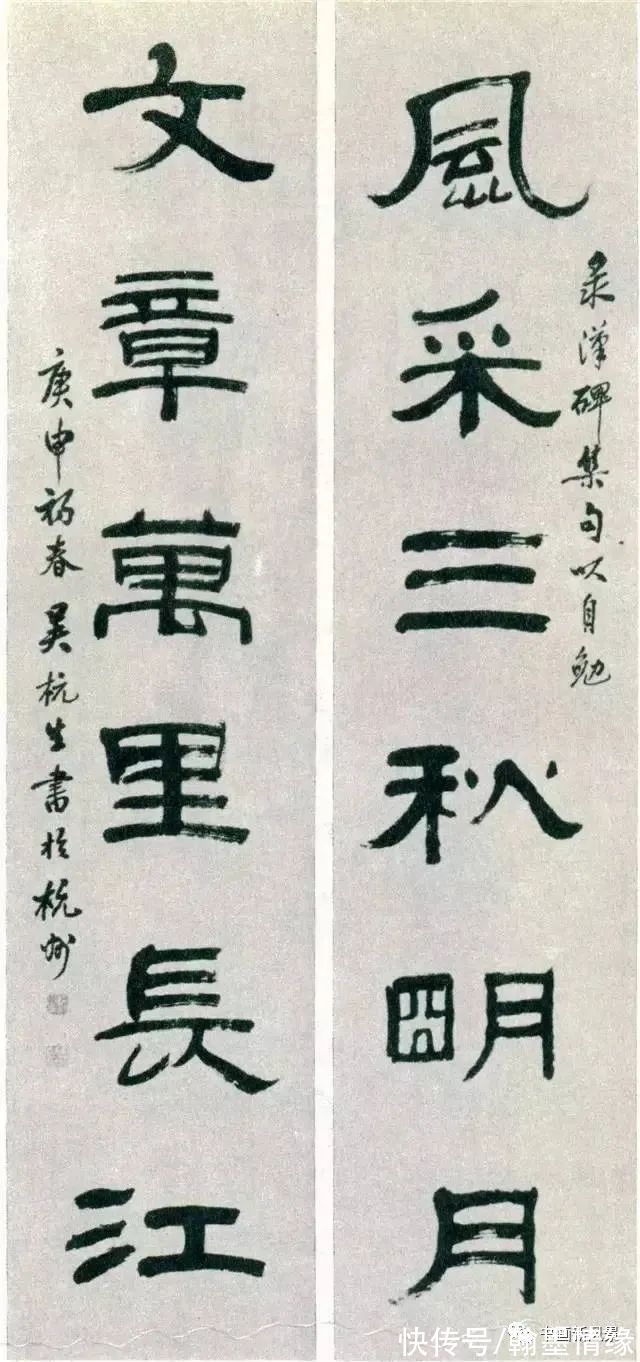 录漢碑集句以自勉
風采三秋明月
文章萬里長江
庚申初春吴杭生書於杭州
快传号/翰墨情缘